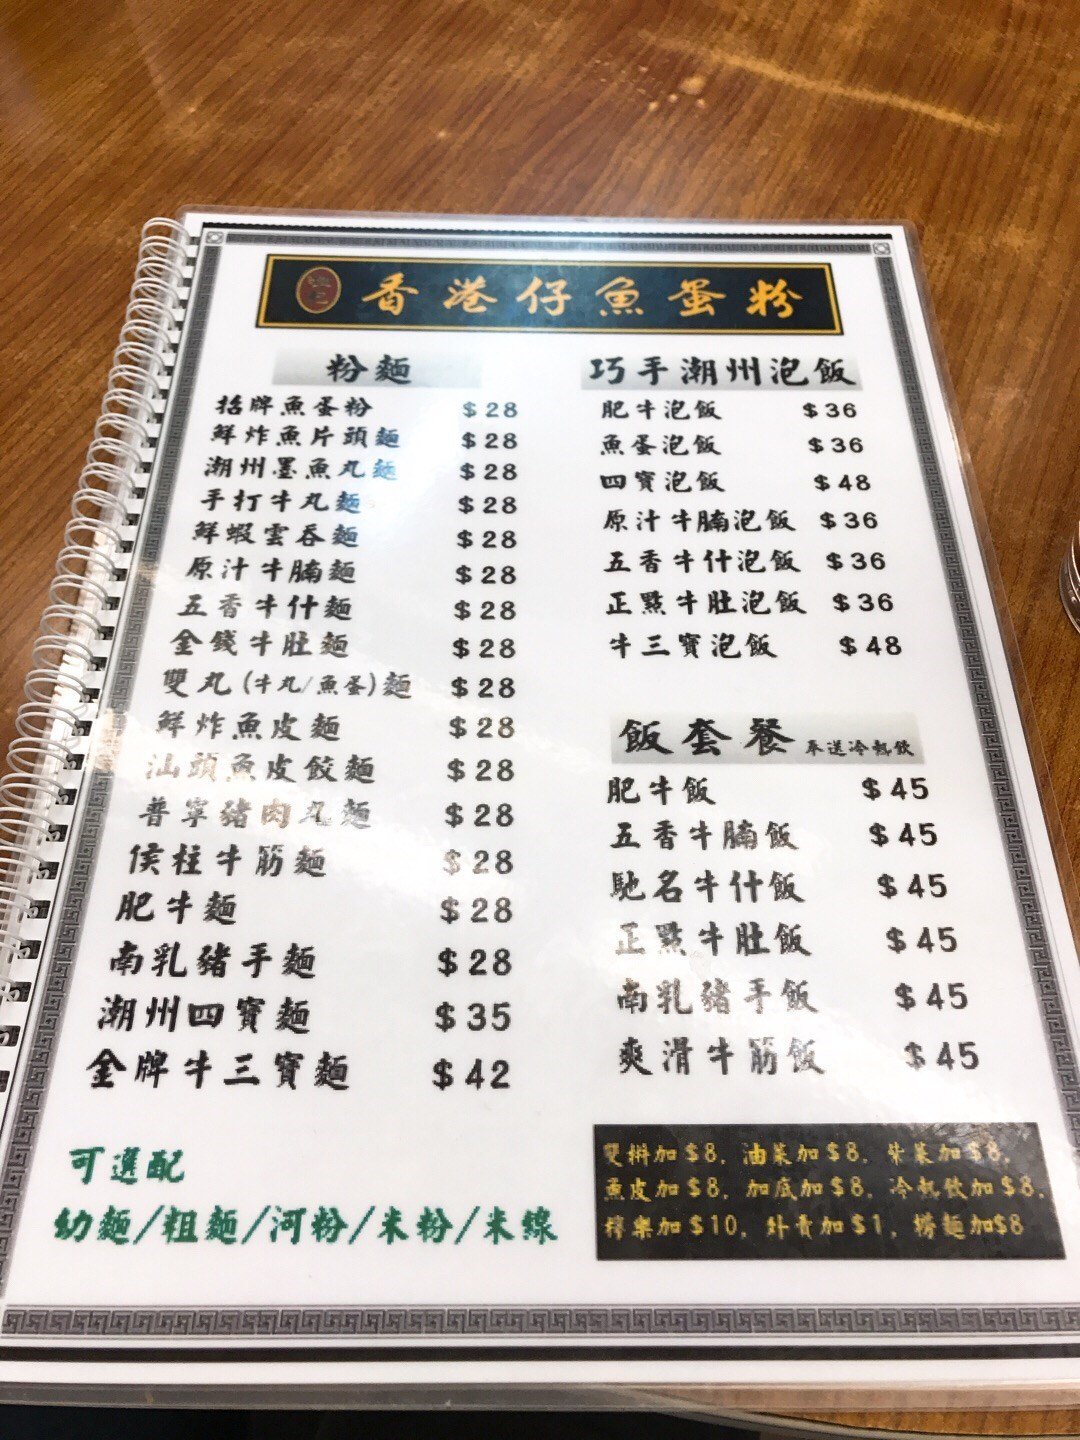 香港仔魚蛋粉
粉麵
招牌魚蛋粉 $28
鮮炸魚片頭麵 $28
潮州墨魚丸麵 $28
手打牛丸麵 $28
鮮蝦雲吞麵 $28
原汁牛腩麵 $28
五香牛什麵 $28
金錢牛肚麵 $28
雙丸(牛丸/魚蛋)麵 $28
鮮炸魚皮麵 $28
汕頭魚皮餃麵 $28
普寧豬肉丸麵 $28
侯柱牛筋麵 $28
肥牛麵 $28
南乳豬手麵 $28
潮州四寶麵 $35
金牌牛三寶麵 $42
可選配
幼麵/粗麵/河粉/米粉/米線
巧手潮州泡飯
肥牛泡飯 $36
魚蛋泡飯 $36
四寶泡飯 $48
原汁牛腩泡飯 $36
五香牛什泡飯 $36
正點牛肚泡飯 $36
牛三寶泡飯 $48
飯套餐 奉送冷熱飲
肥牛飯 $45
五香牛腩飯 $45
馳名牛什飯 $45
正點牛肚飯 $45
南乳豬手飯 $45
爽滑牛筋飯 $45
雙拼加$8, 油菜加$8, 紫菜加$8,
魚皮加$8, 加底加$8, 冷熱飲加$8,
檸樂加$10, 外賣加$1, 撈麵加$8